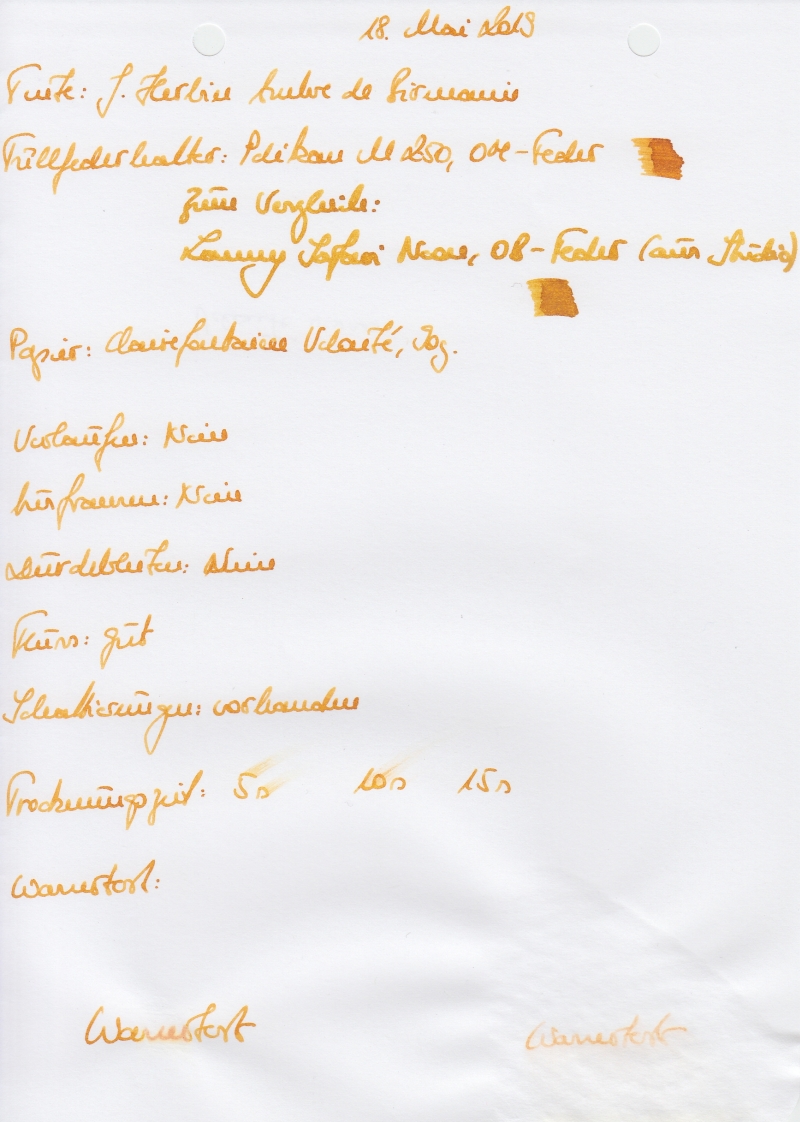 18. Mai 2019
Tinte: J. Herbin Ambre de Birmanie
Füllfederhalter: Pelikan M 250, OM-Feder
Zum Vergleich:
Lamy Safari Neon, OB-Feder (aus Studio)
Papier: Clairefontaine Velouté, 90g.
Verlaufen: Nein
Ausfransen: Nein
Durchbluten: Nein
Fluss: gut
Schattierungen: vorhanden
Trocknungszeit: 5s 10s 15s
Wassertest:
Wassertest Wassertest